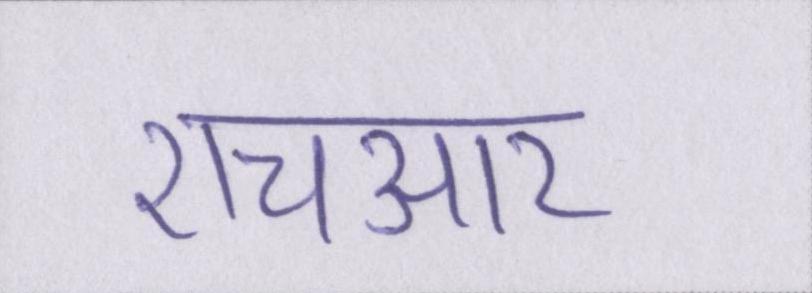 एचआर